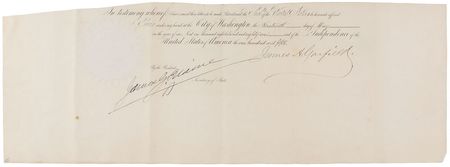 In testimony whereof I have caused these Letters to be made Patent and the Seal of the United States to be hereunto affixed
Given under my hand at the City of Washington the day of May
in the year of our Lord one thousand eight hundred and eighty one and of the Independence of the
United States of America the one hundred and fifth
By the President
James G. Blaine
Secretary of State
James A. Garfield